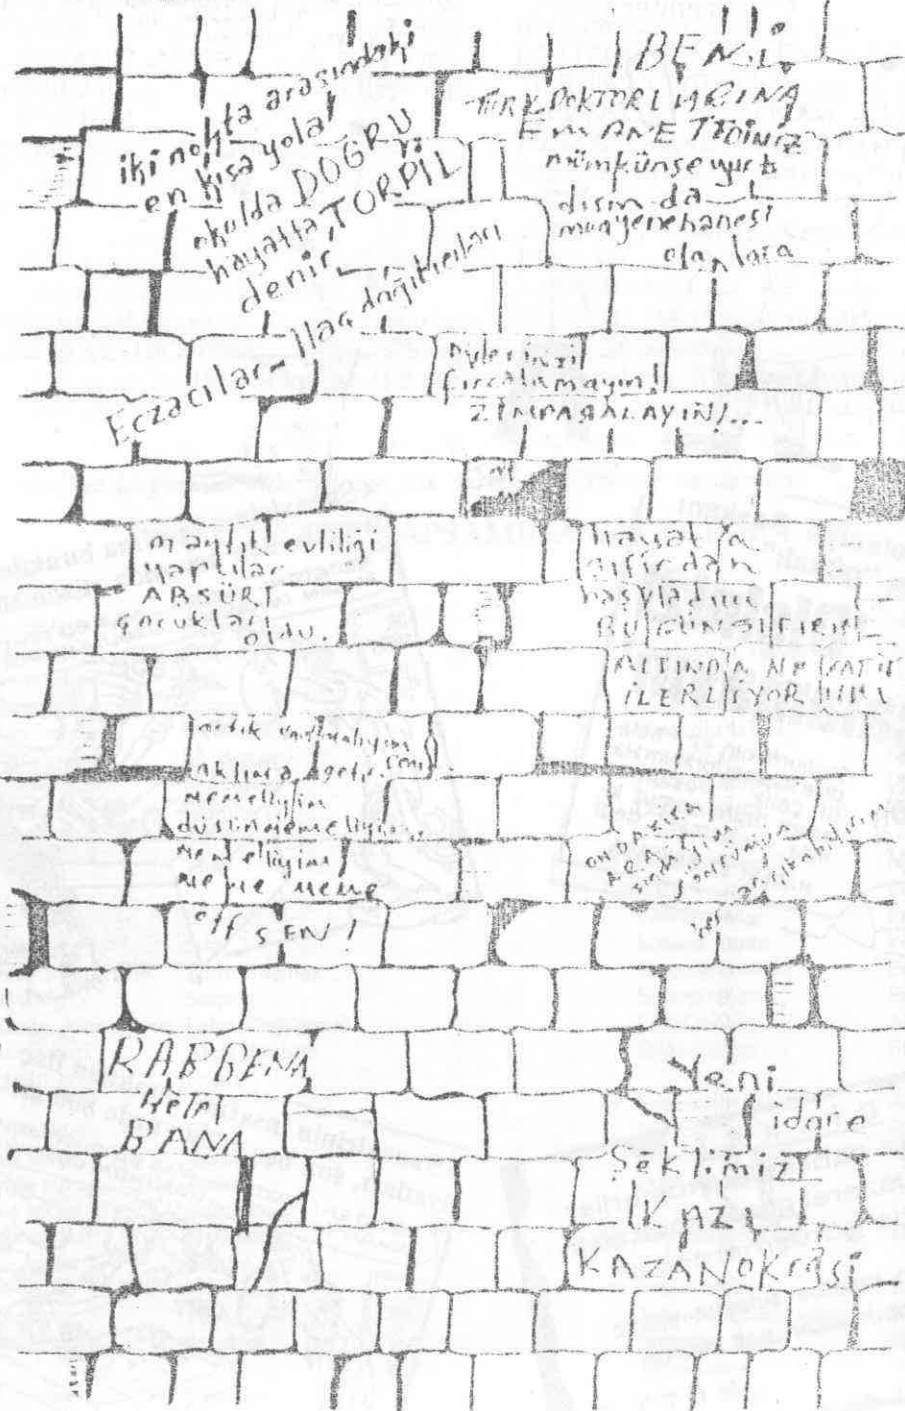 iki nokta arasındaki
en kısa yola
okulda DOGRU
hayatta, TORPİL
denir
BENİ
TÜRK DOKTORLARINA
EMANET EDİNİZ
mümkünse yurt
dışında
muayenehanesi
olanlara
Eczacılar - İlaç dağıtıcıları
fırçalamayın!
ZIMPARALAYIN!...
mantık evliliği
yaptılar
ABSÜRT
çocukları
oldu.
hayata
sıfırdan
başladım
BUGÜN SIFIRIN
ALTINDA
İLERLİYORUM
artık
aklıma
memeliyim
düşünmemeliyim
memeliyim
meme meme
off SEN!
RABBENA
Hele
BANA
Yeni
idare
Şeklimiz
KAZI
KAZANOKrasi